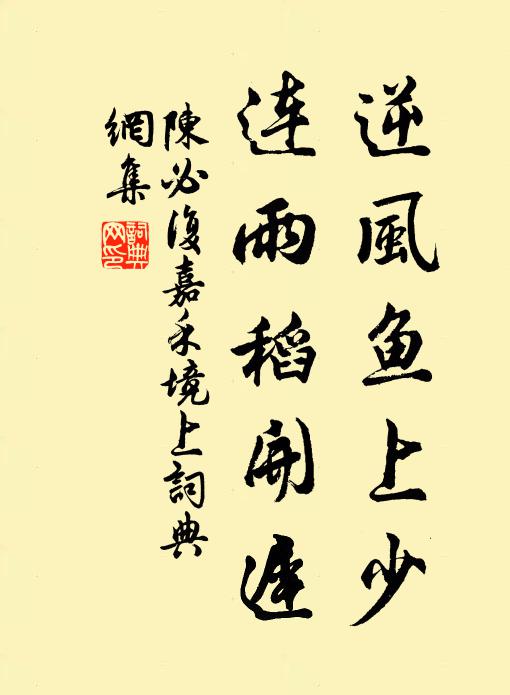 逆風魚上少
連雨稻開遲
陳必復嘉禾境上詞典
網集
詞典
网印